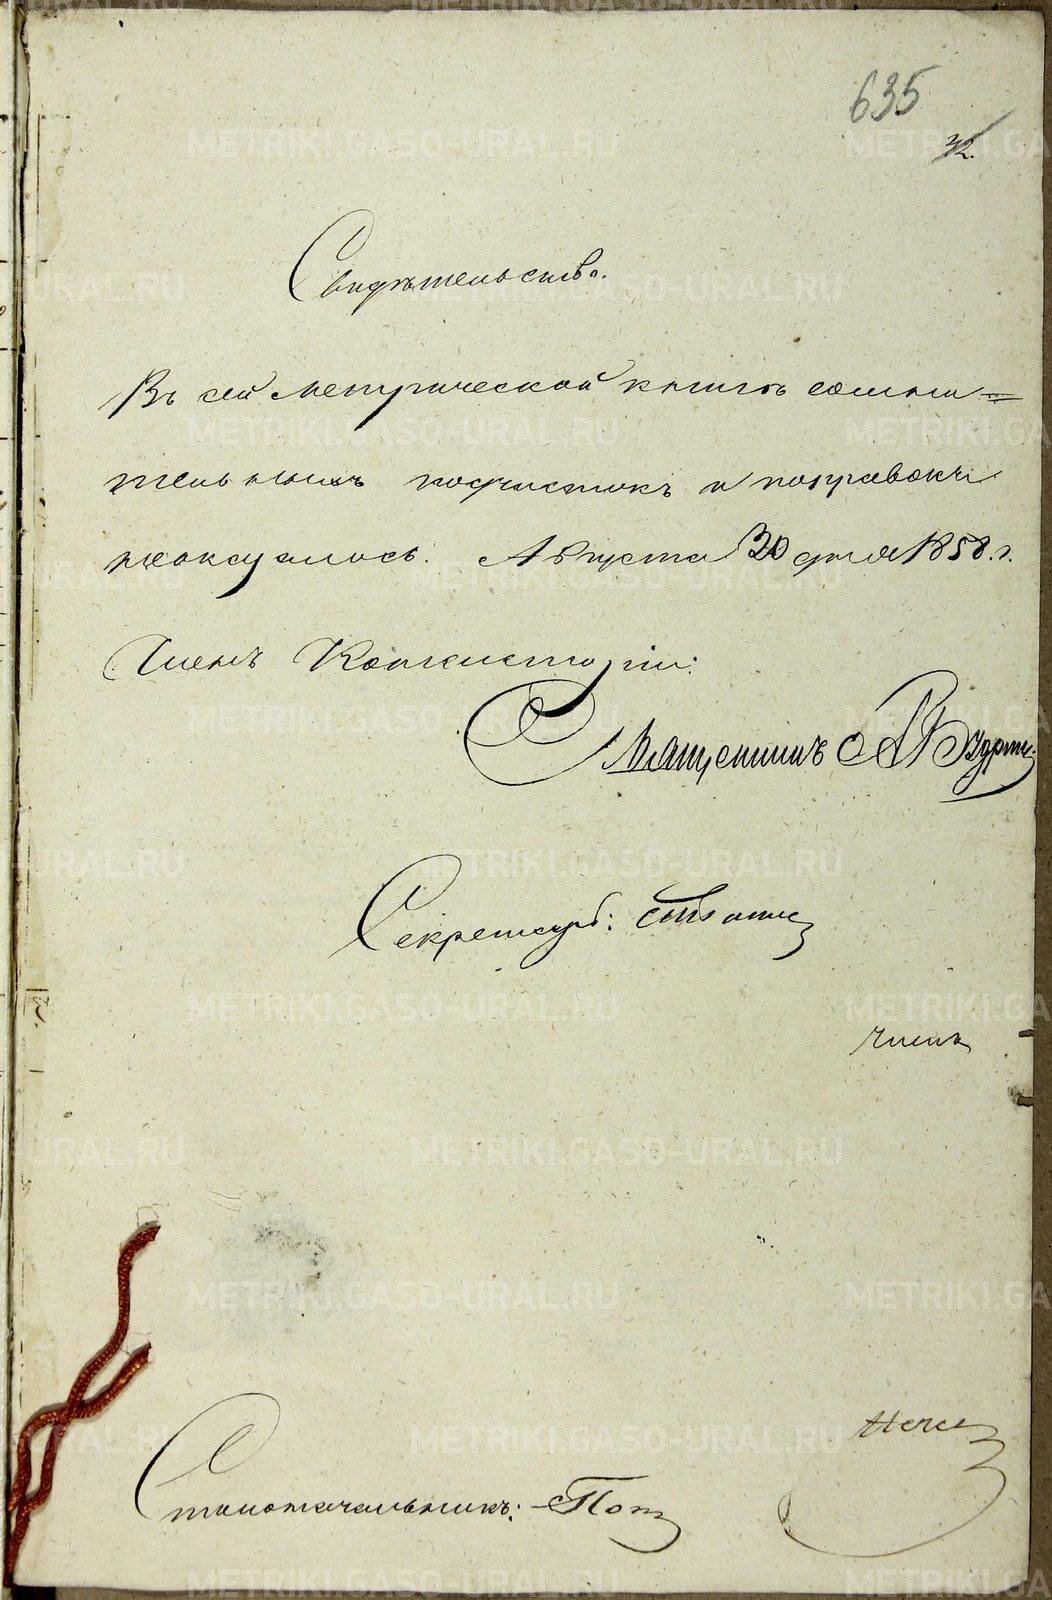 635
32.
Свидѣтельство.
Въ сей метрической книгѣ сомни=
тельныхъ подчистокъ и поправокъ
неоказалось. Августа 30 дня 1858. г.
Членъ Консисторіи:
Священникъ
Секретарь:
членъ
Столоначальникъ: Поп
METRIKI.GASO-URAL.RU